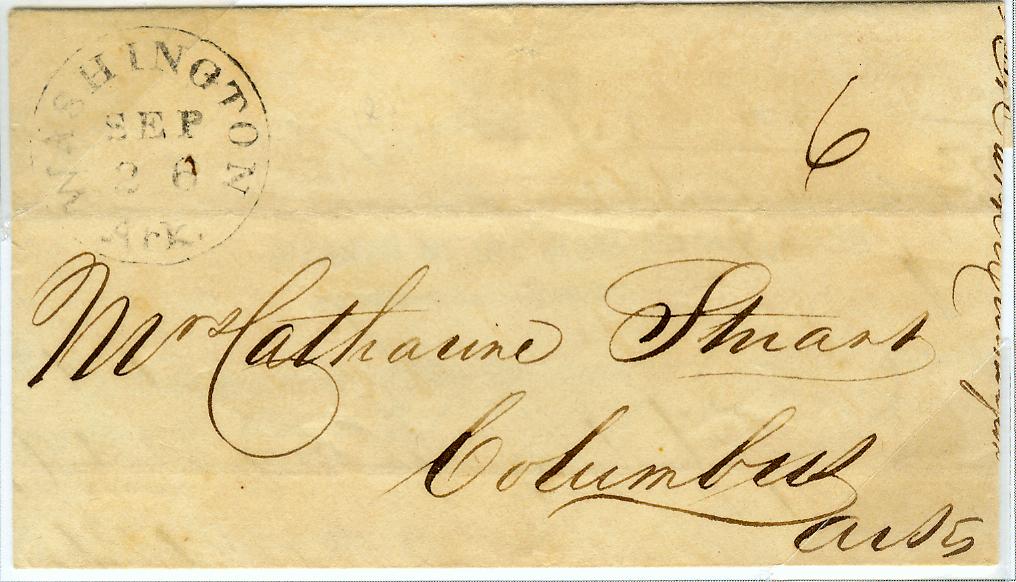 WASHINGTON
SEP
26
Ark.
6
Mrs Catharine Stuart
Columbus